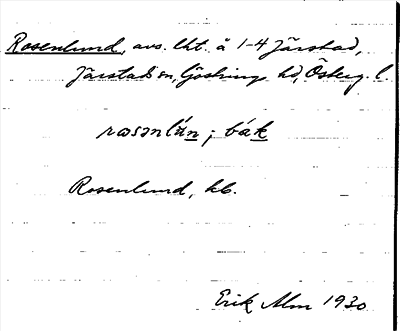 Rosenlund, avs. lht. å 1-4 Järstad,
Järstads sn, Göstrings hd, Österg. l.
rosənlún; bák
Rosenlund, kb.
Erik Alm 1930